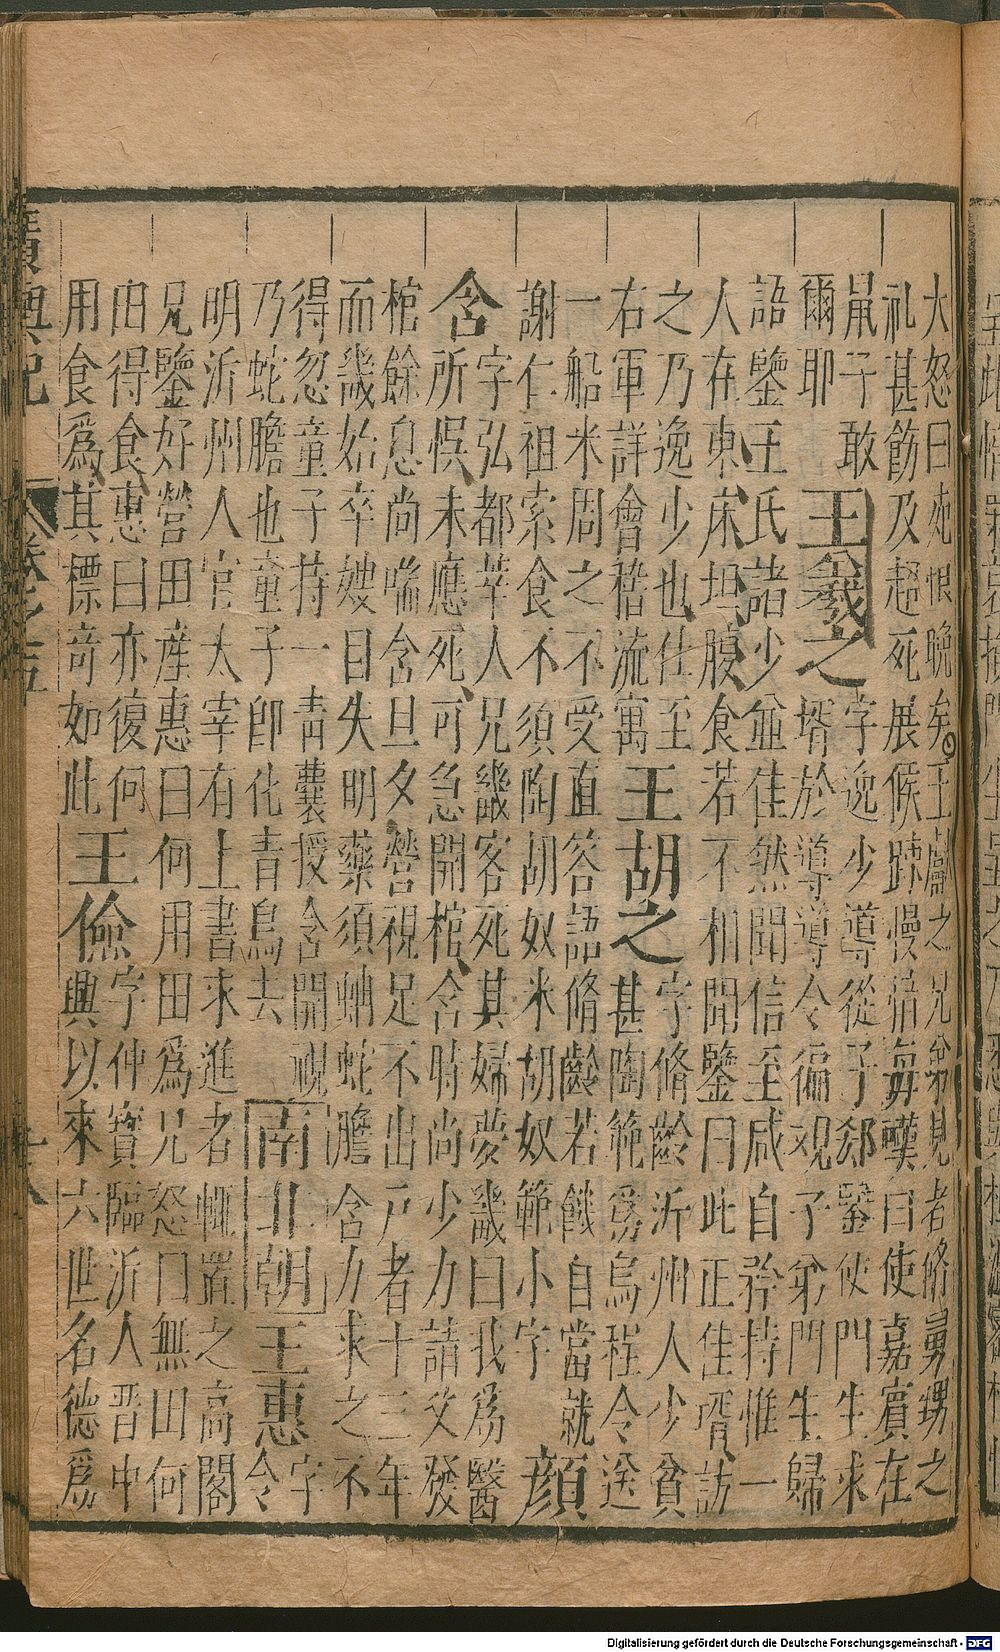 大怒曰死恨晚矣○王獻之兄弟見者脩舅甥之
礼甚飭及超死展候踈慢愔每嘆曰使嘉賓在
鼠子敢
爾耶
王羲之
字逸少導從子郄鑒使門生求
壻於導導令徧觀子弟門生歸
語鑒王氏諸少並佳然聞信至咸自矜持惟一
人在東床坦腹食若不相聞鑒曰此正佳壻訪
之乃逸少也仕至
右軍詳會稽流寓
王胡之
字脩齡沂州人少貧
甚陶範爲烏程令送
一船米周之不受直答語脩齡若饑自當就
謝仁祖索食不須陶胡奴米胡奴範小字
顏
含
字弘都莘人兄畿客死其婦夢畿曰我爲醫
所悞未應死可急開棺含時尚少力請父發
棺餘息尚喘含旦夕營視足不出戶者十三年
而畿始卒嫂目失明藥須蚺蛇膽含力求之不
得忽童子持一青囊授含開視
乃蛇膽也童子卽化青鳥去
南北朝
王惠
字
令
明沂州人官太宰有上書求進者輒置之高閣
兄鑒好營田産惠曰何用田爲兄怒曰無田何
由得食惠曰亦復何
用食爲其標竒如此
王儉
字仲寶臨沂人晋中
興以來六世名德爲
廣輿記
卷之五
十八
Digitalisierung gefördert durch die Deutsche Forschungsgemeinschaft - DFG